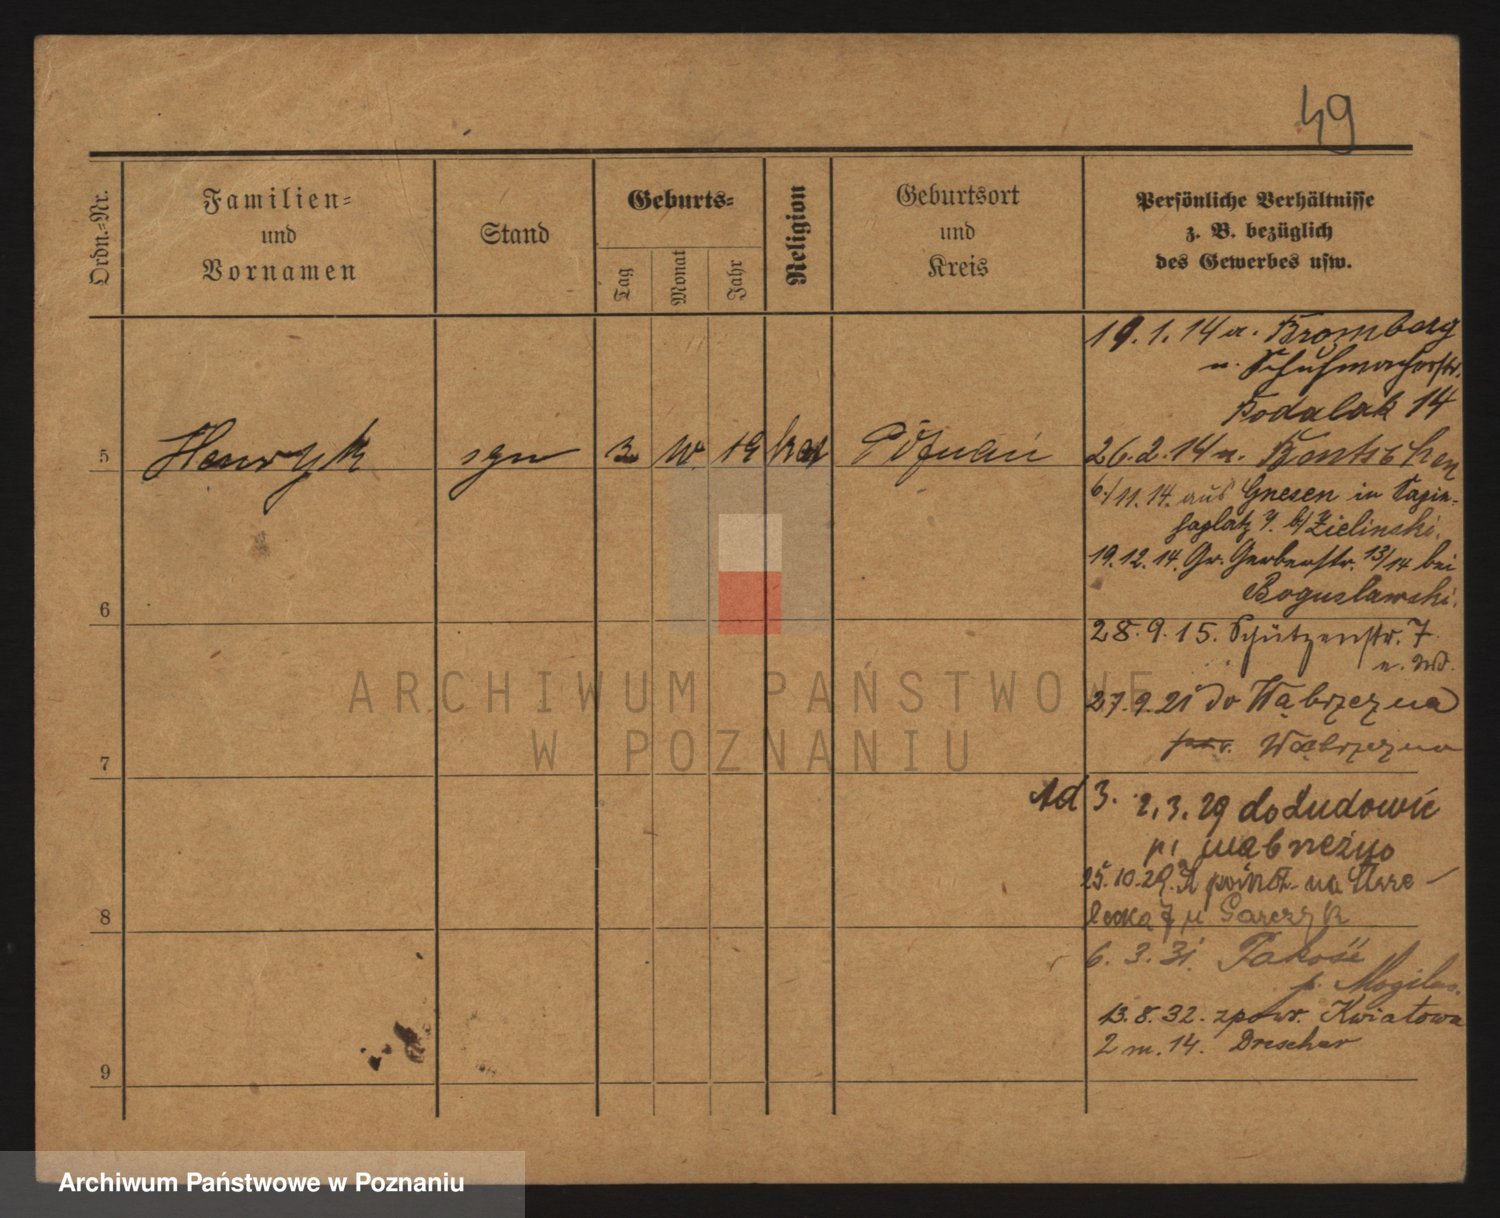 49
Ordn.-Nr.
Familien-
und
Vornamen
Stand
Geburts-
Tag
Monat
Jahr
Religion
Geburtsort
und
Kreis
Persönliche Verhältnisse
z. B. bezüglich
des Gewerbes usw.
19.1.14 a. Bromberg
n. Schuhmacherstr.
Podalak 14
5 Henryk syn 3 19 kat Poznań
26.2.14 n.
6/11.14. aus Gnesen in Sapie-
haplatz 7. b/ Zielinski.
19.12.14. Gr. Gerberstr. 13/14 bei
Boguslawski.
6
28.9.15. Schützenstr. 7.
27.9.21 do Wąbrzezna
pow. Wąbrzezna
7
Ad 3. 2.3.29 do Ludowic
p. Wąbrzeźno
25.10.29. na Strze-
lecką 7 u Garczyk
8
6.3.31. Pakość
p. Mogilno.
13.8.32. z pow. Kwiatowa
2 m. 14. Drescher
9
ARCHIWUM PAŃSTWOWE
W POZNANIU
Archiwum Państwowe w Poznaniu